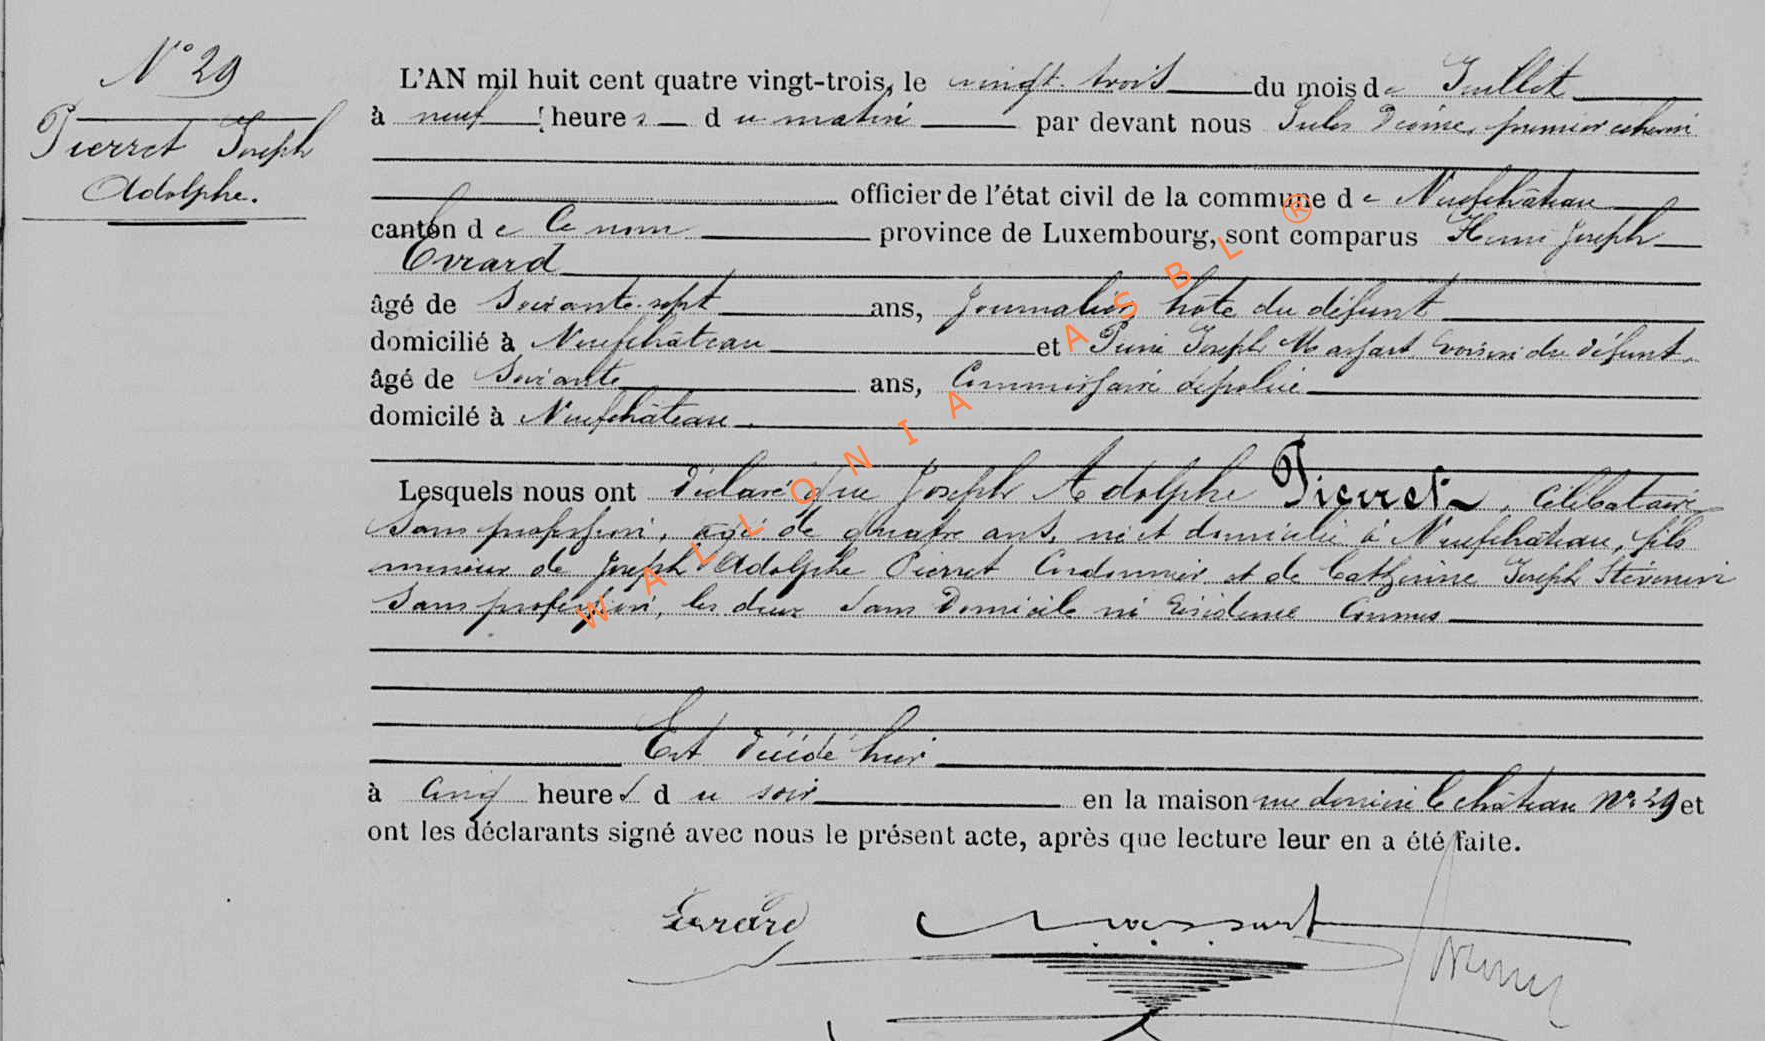 N° 29
Pierret Joseph
Adolphe.
L'AN mil huit cent quatre vingt-trois, le vingt-trois du mois de Juillet
à neuf heures du matin par devant nous Jules premier échevin
officier de l'état civil de la commune de Neufchâteau
canton de Ce nom province de Luxembourg, sont comparus Henri Joseph
Evrard
âgé de Soixante-sept ans, Journalier, hôte du défunt
domicilié à Neufchâteau et Pierre Joseph Massart voisin du défunt
âgé de Soixante ans, Commissaire de police
domicilé à Neufchâteau.
Lesquels nous ont déclaré que Joseph Adolphe Pierret, célibataire
Sans profession, agé de quatre ans, né et domicilié à Neufchâteau, fils
mineur de Joseph Adolphe Pierret Cordonnier et de Catherine Joseph Stévenin
Sans profession, les deux Sans Domicile ni Résidence Connus
Est décédé hier
à Cinq heures du soir en la maison rue derrière le château N° 29 et
ont les déclarants signé avec nous le présent acte, après que lecture leur en a été faite.
Evrard Massart
WALLONIA ASBL ®